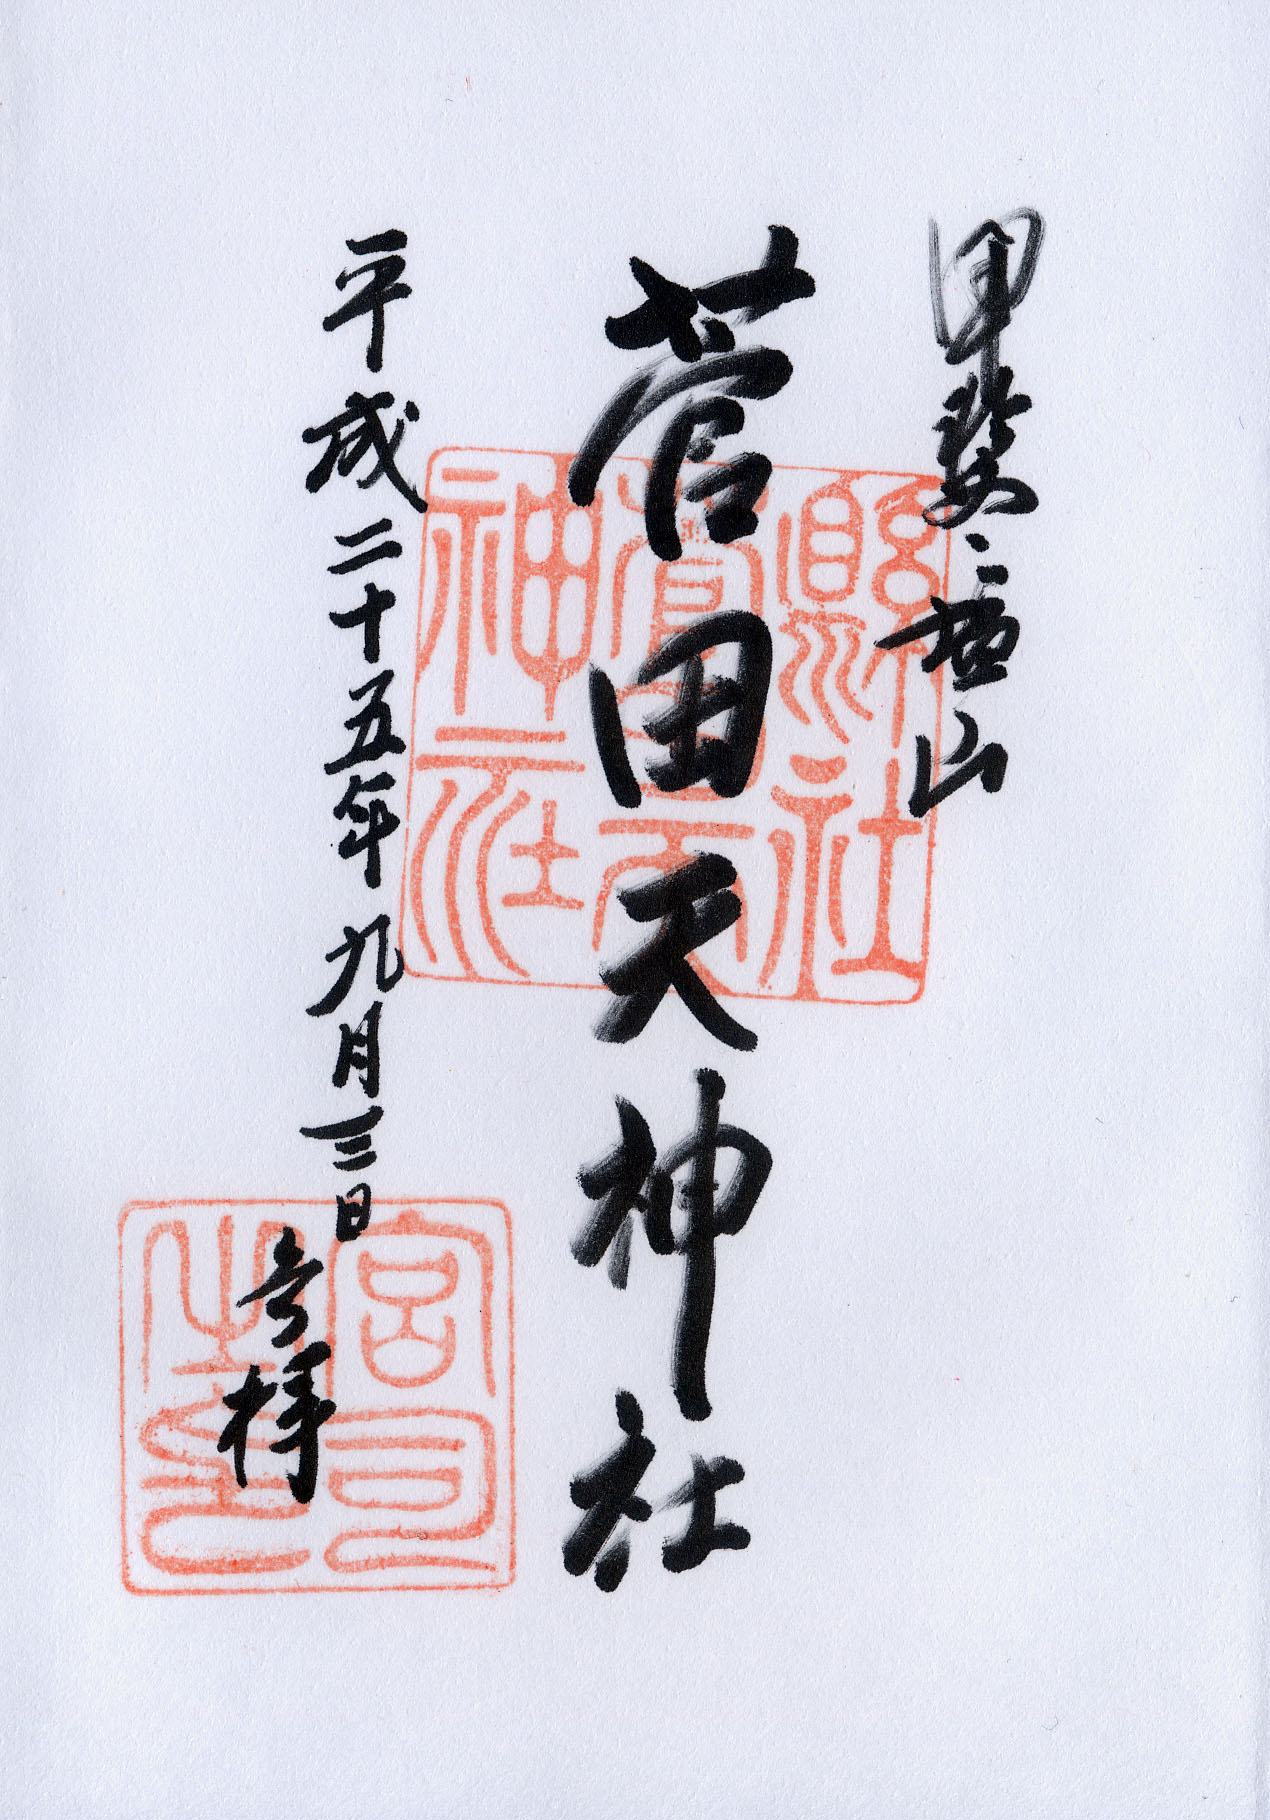 甲斐、塩山
菅田天神社
平成二十五年九月三日
参拝
縣社
菅田天
神社
宮司
之印